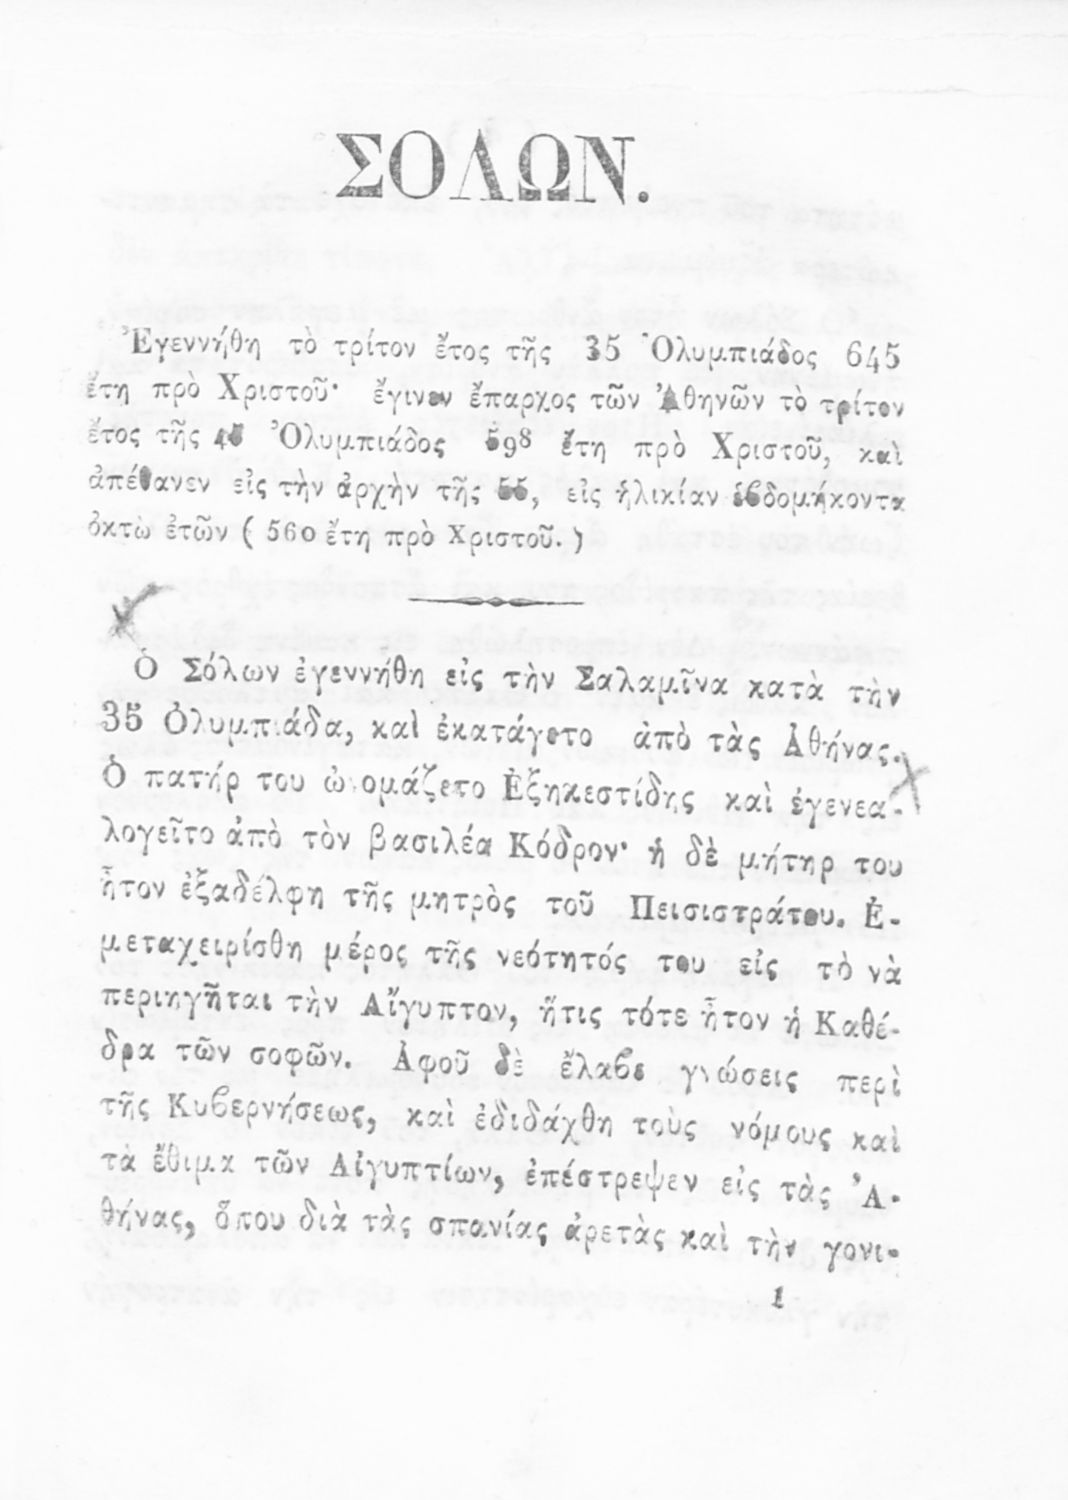 ΣΟΛΩΝ.
Ἐγεννήθη τὸ τρίτον ἔτος τῆς 35 Ὀλυμπιάδος 645
ἔτη πρὸ Χριστοῦ· ἔγινεν ἔπαρχος τῶν Ἀθηνῶν τὸ τρίτον
ἔτος τῆς Ὀλυμπιάδος 598 ἔτη πρὸ Χριστοῦ, καὶ
ἀπέθανεν εἰς τὴν ἀρχὴν τῆς 55, εἰς ἡλικίαν ἑβδομήκοντα
ὀκτὼ ἐτῶν ( 560 ἔτη πρὸ Χριστοῦ. )
Ὁ Σόλων ἐγεννήθη εἰς τὴν Σαλαμῖνα κατὰ τὴν
35 Ὀλυμπιάδα, καὶ ἐκατάγετο ἀπὸ τὰς Ἀθήνας.
Ὁ πατήρ του ὠνομάζετο Ἐξηκεστίδης καὶ ἐγενεα-
λογεῖτο ἀπὸ τὸν βασιλέα Κόδρον· ἡ δὲ μήτηρ του
ἦτον ἐξαδέλφη τῆς μητρὸς τοῦ Πεισιστράτου. Ἐ-
μεταχειρίσθη μέρος τῆς νεότητός του εἰς τὸ νὰ
περιηγῆται τὴν Αἴγυπτον, ἥτις τότε ἦτον ἡ Καθέ-
δρα τῶν σοφῶν. Ἀφοῦ δὲ ἔλαβε γνώσεις περὶ
τῆς Κυβερνήσεως, καὶ ἐδιδάχθη τοὺς νόμους καὶ
τὰ ἔθιμα τῶν Αἰγυπτίων, ἐπέστρεψεν εἰς τὰς Ἀ-
θήνας, ὅπου διὰ τὰς σπανίας ἀρετὰς καὶ τὴν γονι-
1